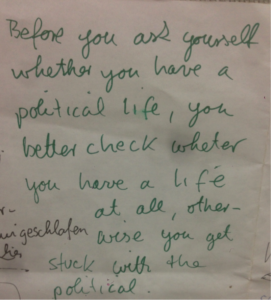 Before you ask yourself
whether you have a
political life, you
better check wheter
you have a life
at all, other-
wise you get
stuck with the
political.
r-
eingeschlafen
hier